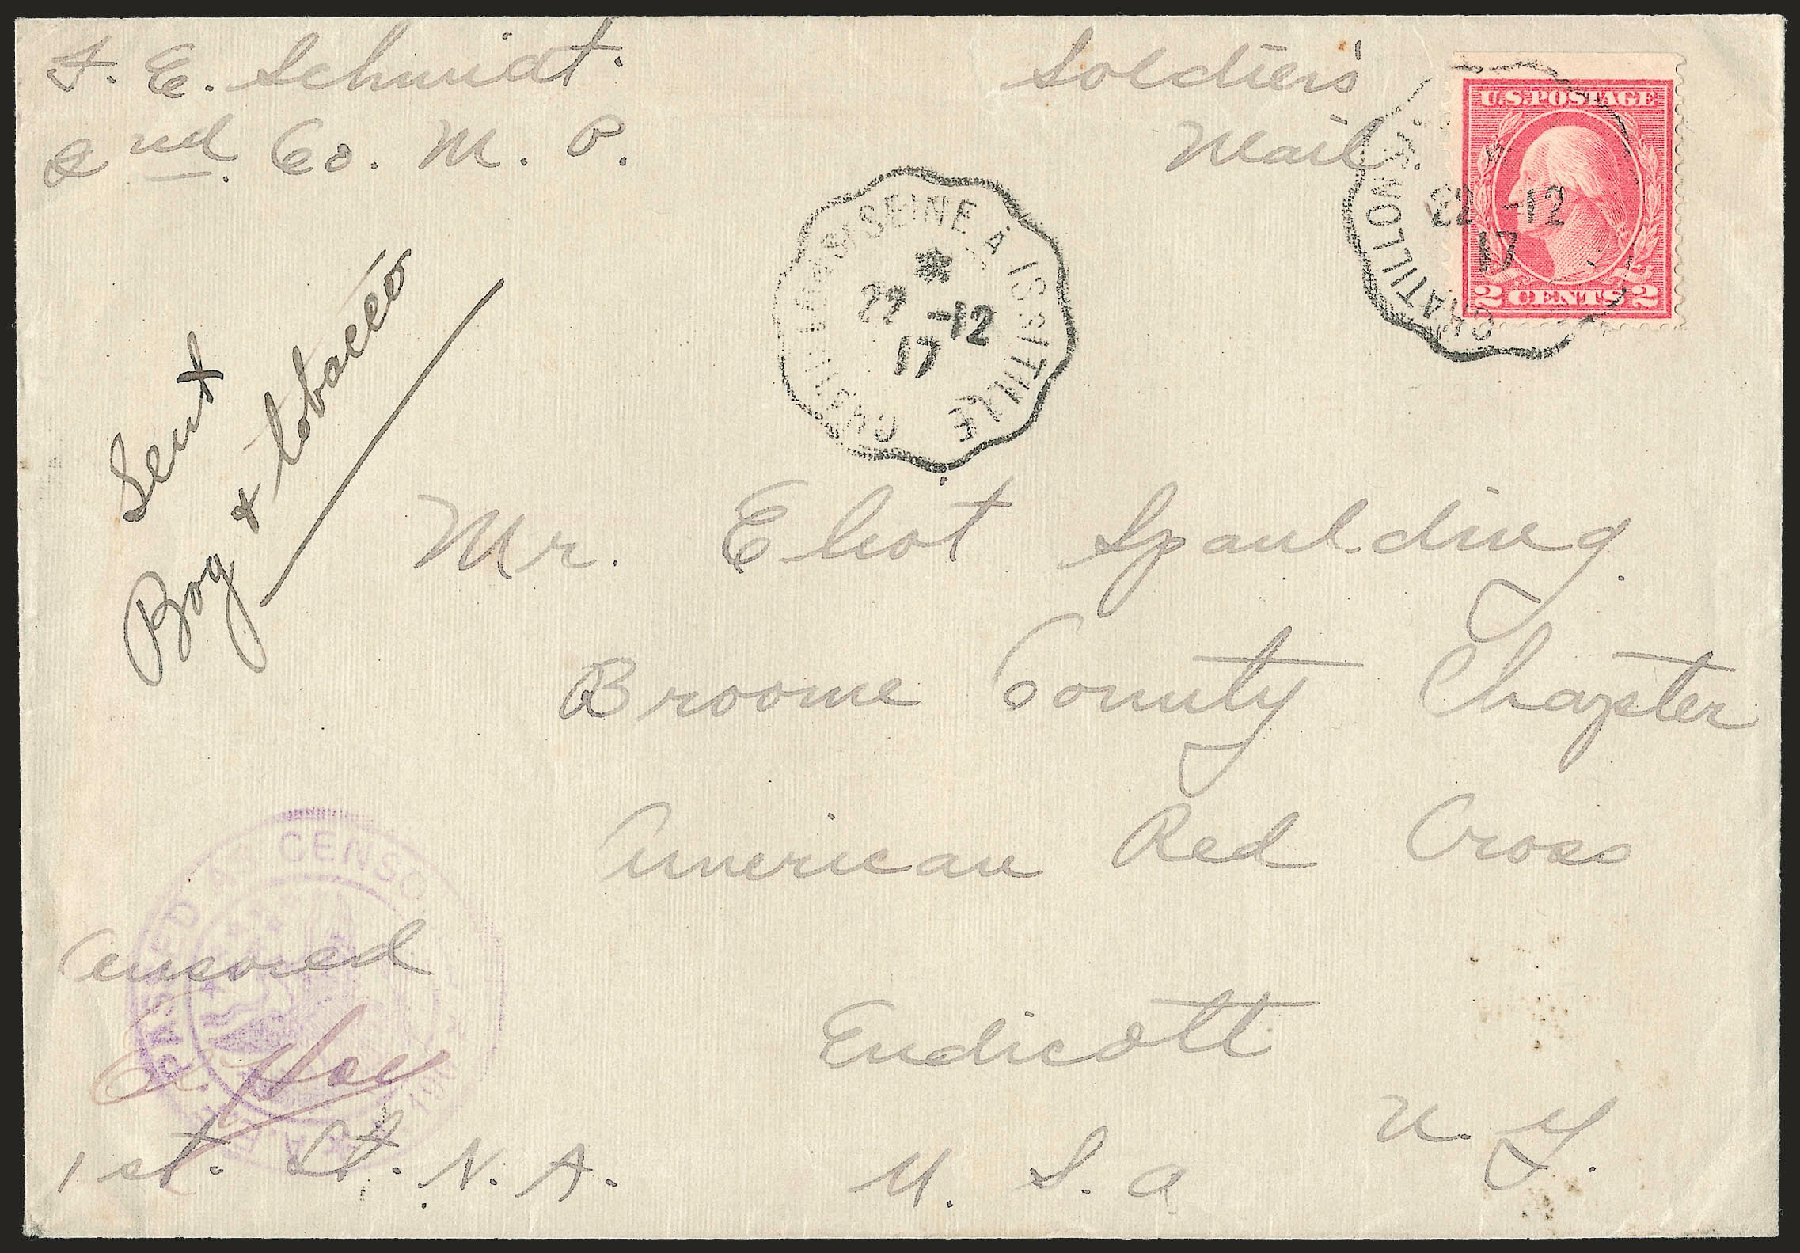 F. E. Schmidt.
2nd. Co. M. P.
Soldier's
Mail.
U.S. POSTAGE
2 CENTS 2
CHATILLON
22 -12
17
CHATILLON-S/SEINE A IS S/TILLE
22 -12
17
Sent
Bog & tobacco
Mr. Eliot Spaulding
Broome County Chapter
American Red Cross
Endicott
N. Y.
U. S. a
PASSED AS CENSORED
A.E.F.
Censored
1st. Lt. N. A.